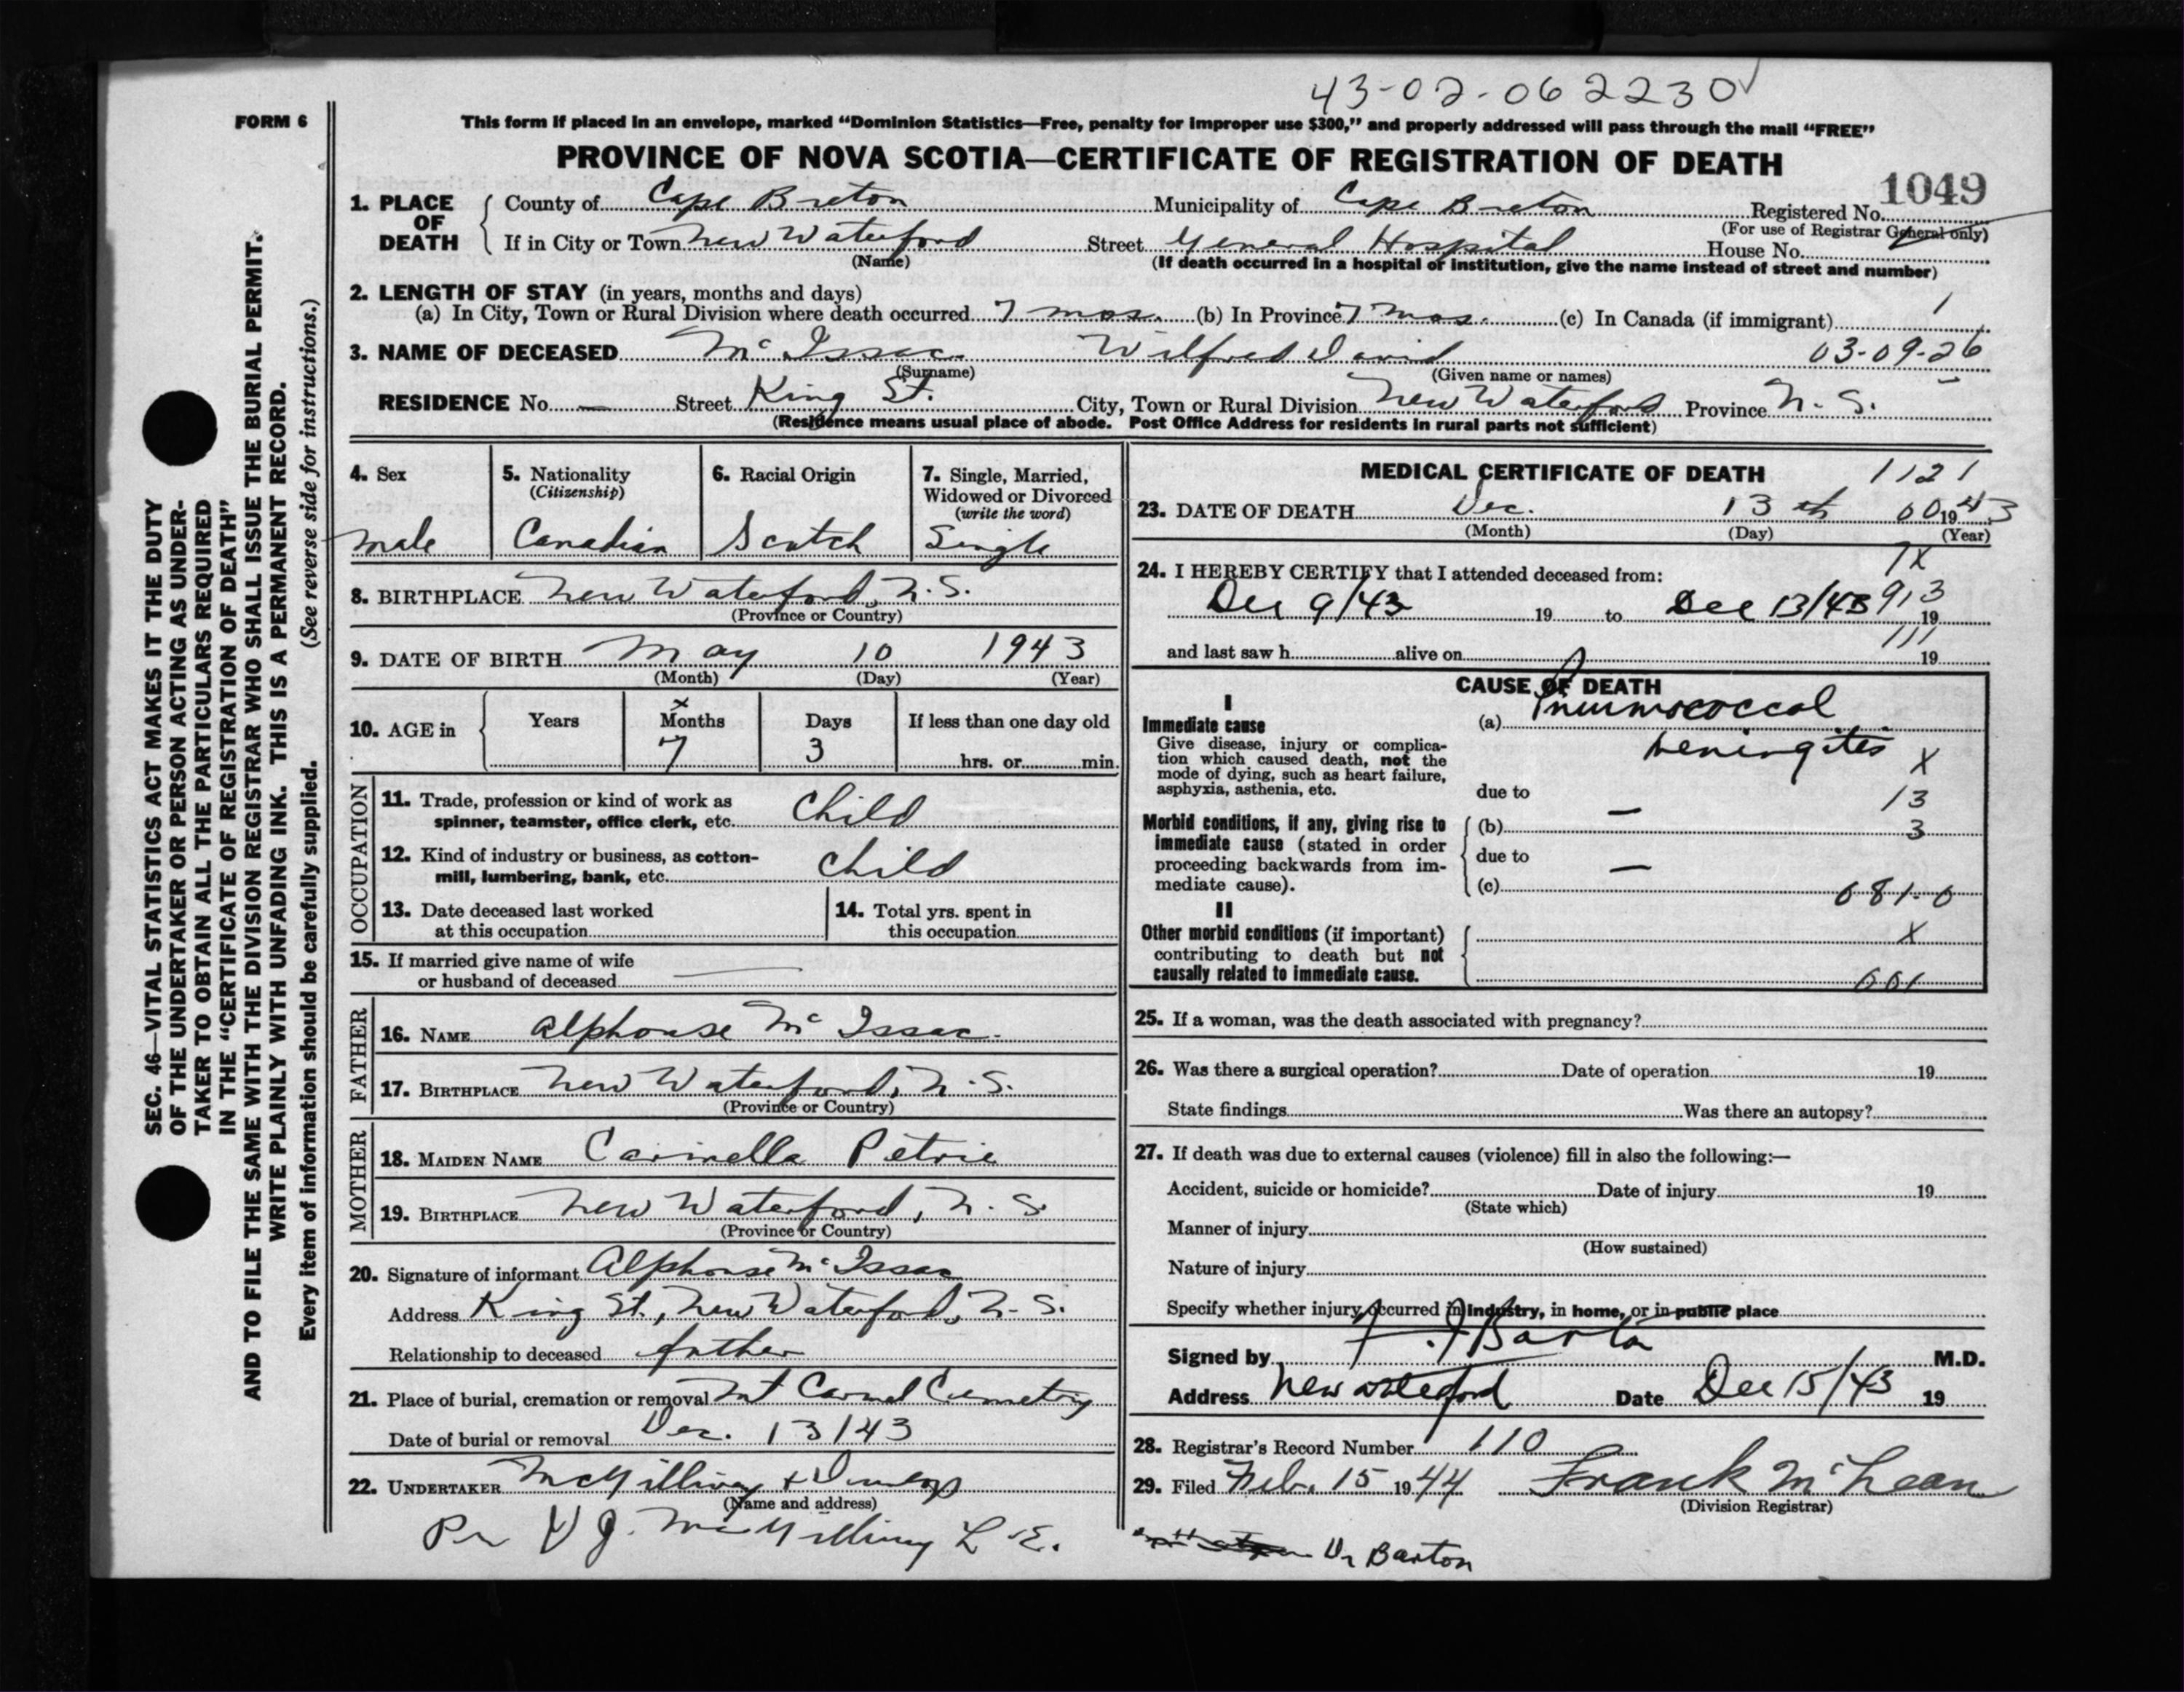 43-02-062230
FORM 6
This form if placed in an envelope, marked “Dominion Statistics—Free, penalty for improper use $300,” and properly addressed will pass through the mail “FREE”
PROVINCE OF NOVA SCOTIA—CERTIFICATE OF REGISTRATION OF DEATH
1049
1. PLACE OF DEATH
County of Cape Breton Municipality of Cape Breton Registered No.
(For use of Registrar General only)
If in City or Town New Waterford Street General Hospital House No.
(Name) (If death occurred in a hospital or institution, give the name instead of street and number)
2. LENGTH OF STAY (in years, months and days)
(a) In City, Town or Rural Division where death occurred 7 mos. (b) In Province 7 mos. (c) In Canada (if immigrant)
3. NAME OF DECEASED Mc Issac Wilfred David 03-09-26
(Surname) (Given name or names)
RESIDENCE No. — Street King St. City, Town or Rural Division New Waterford Province N. S.
(Residence means usual place of abode. Post Office Address for residents in rural parts not sufficient)
4. Sex
male
5. Nationality
(Citizenship)
Canadian
6. Racial Origin
Scotch
7. Single, Married,
Widowed or Divorced
(write the word)
Single
8. BIRTHPLACE New Waterford, N.S.
(Province or Country)
9. DATE OF BIRTH May 10 1943
(Month) (Day) (Year)
10. AGE in
Years Months Days If less than one day old
x
7 3 hrs. or min.
OCCUPATION
11. Trade, profession or kind of work as
spinner, teamster, office clerk, etc. Child
12. Kind of industry or business, as cotton-
mill, lumbering, bank, etc. Child
13. Date deceased last worked
at this occupation
14. Total yrs. spent in
this occupation
15. If married give name of wife
or husband of deceased —
FATHER
16. NAME Alphonse Mc Issac.
17. BIRTHPLACE New Waterford, N.S.
(Province or Country)
MOTHER
18. MAIDEN NAME Carmella Petrie
19. BIRTHPLACE New Waterford, N. S.
(Province or Country)
20. Signature of informant Alphonse Mc Issac
Address King St., New Waterford, N. S.
Relationship to deceased father
21. Place of burial, cremation or removal Mt Carmel Cemetry
Date of burial or removal Dec. 13/43
22. UNDERTAKER McGillivray &
(Name and address)
Per J. McGillivray L. E.
MEDICAL CERTIFICATE OF DEATH
1121
23. DATE OF DEATH Dec. 13th 00 1943
(Month) (Day) (Year)
7X
24. I HEREBY CERTIFY that I attended deceased from:
Dec 9/43 19 to Dec 13/43 19
913
and last saw h alive on 19
111
CAUSE OF DEATH
I
Immediate cause
Give disease, injury or complica-
tion which caused death, not the
mode of dying, such as heart failure,
asphyxia, asthenia, etc.
(a) Pneumococcal
Meningites X
due to — 13
Morbid conditions, if any, giving rise to
immediate cause (stated in order
proceeding backwards from im-
mediate cause).
(b) 3
due to —
(c) 081-0
II
Other morbid conditions (if important)
contributing to death but not
causally related to immediate cause.
X
001
25. If a woman, was the death associated with pregnancy?
26. Was there a surgical operation? Date of operation 19
State findings Was there an autopsy?
27. If death was due to external causes (violence) fill in also the following:—
Accident, suicide or homicide? Date of injury 19
(State which)
Manner of injury
(How sustained)
Nature of injury
Specify whether injury occurred in industry, in home, or in public place
Signed by Barton M.D.
Address New Waterford Date Dec 15/43 19
28. Registrar's Record Number 110
29. Filed Feb. 15 1944 Frank McLean
(Division Registrar)
Dr Barton
SEC. 46—VITAL STATISTICS ACT MAKES IT THE DUTY
OF THE UNDERTAKER OR PERSON ACTING AS UNDER-
TAKER TO OBTAIN ALL THE PARTICULARS REQUIRED
IN THE “CERTIFICATE OF REGISTRATION OF DEATH”
AND TO FILE THE SAME WITH THE DIVISION REGISTRAR WHO SHALL ISSUE THE BURIAL PERMIT.
WRITE PLAINLY WITH UNFADING INK. THIS IS A PERMANENT RECORD.
Every item of information should be carefully supplied. (See reverse side for instructions.)